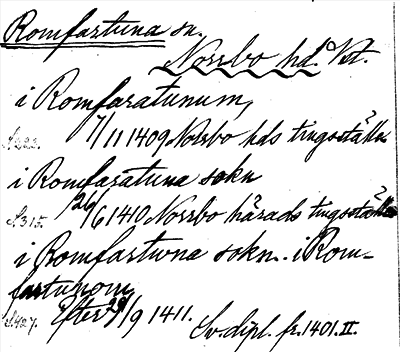 Romfartuna sn.
Norrbo hd. Vst.
i Romfaratunum,
S.223. 7/11 1409 Norrbo hds tingsställe
i Romfaratuna sokn
S.315. 26/6 1410 Norrbo härads tingsställe
i Romfartuna sokn. i Rom-
fartunom
S.427. Efter 29/9 1411.
Sv. dipl. fr. 1401. II.